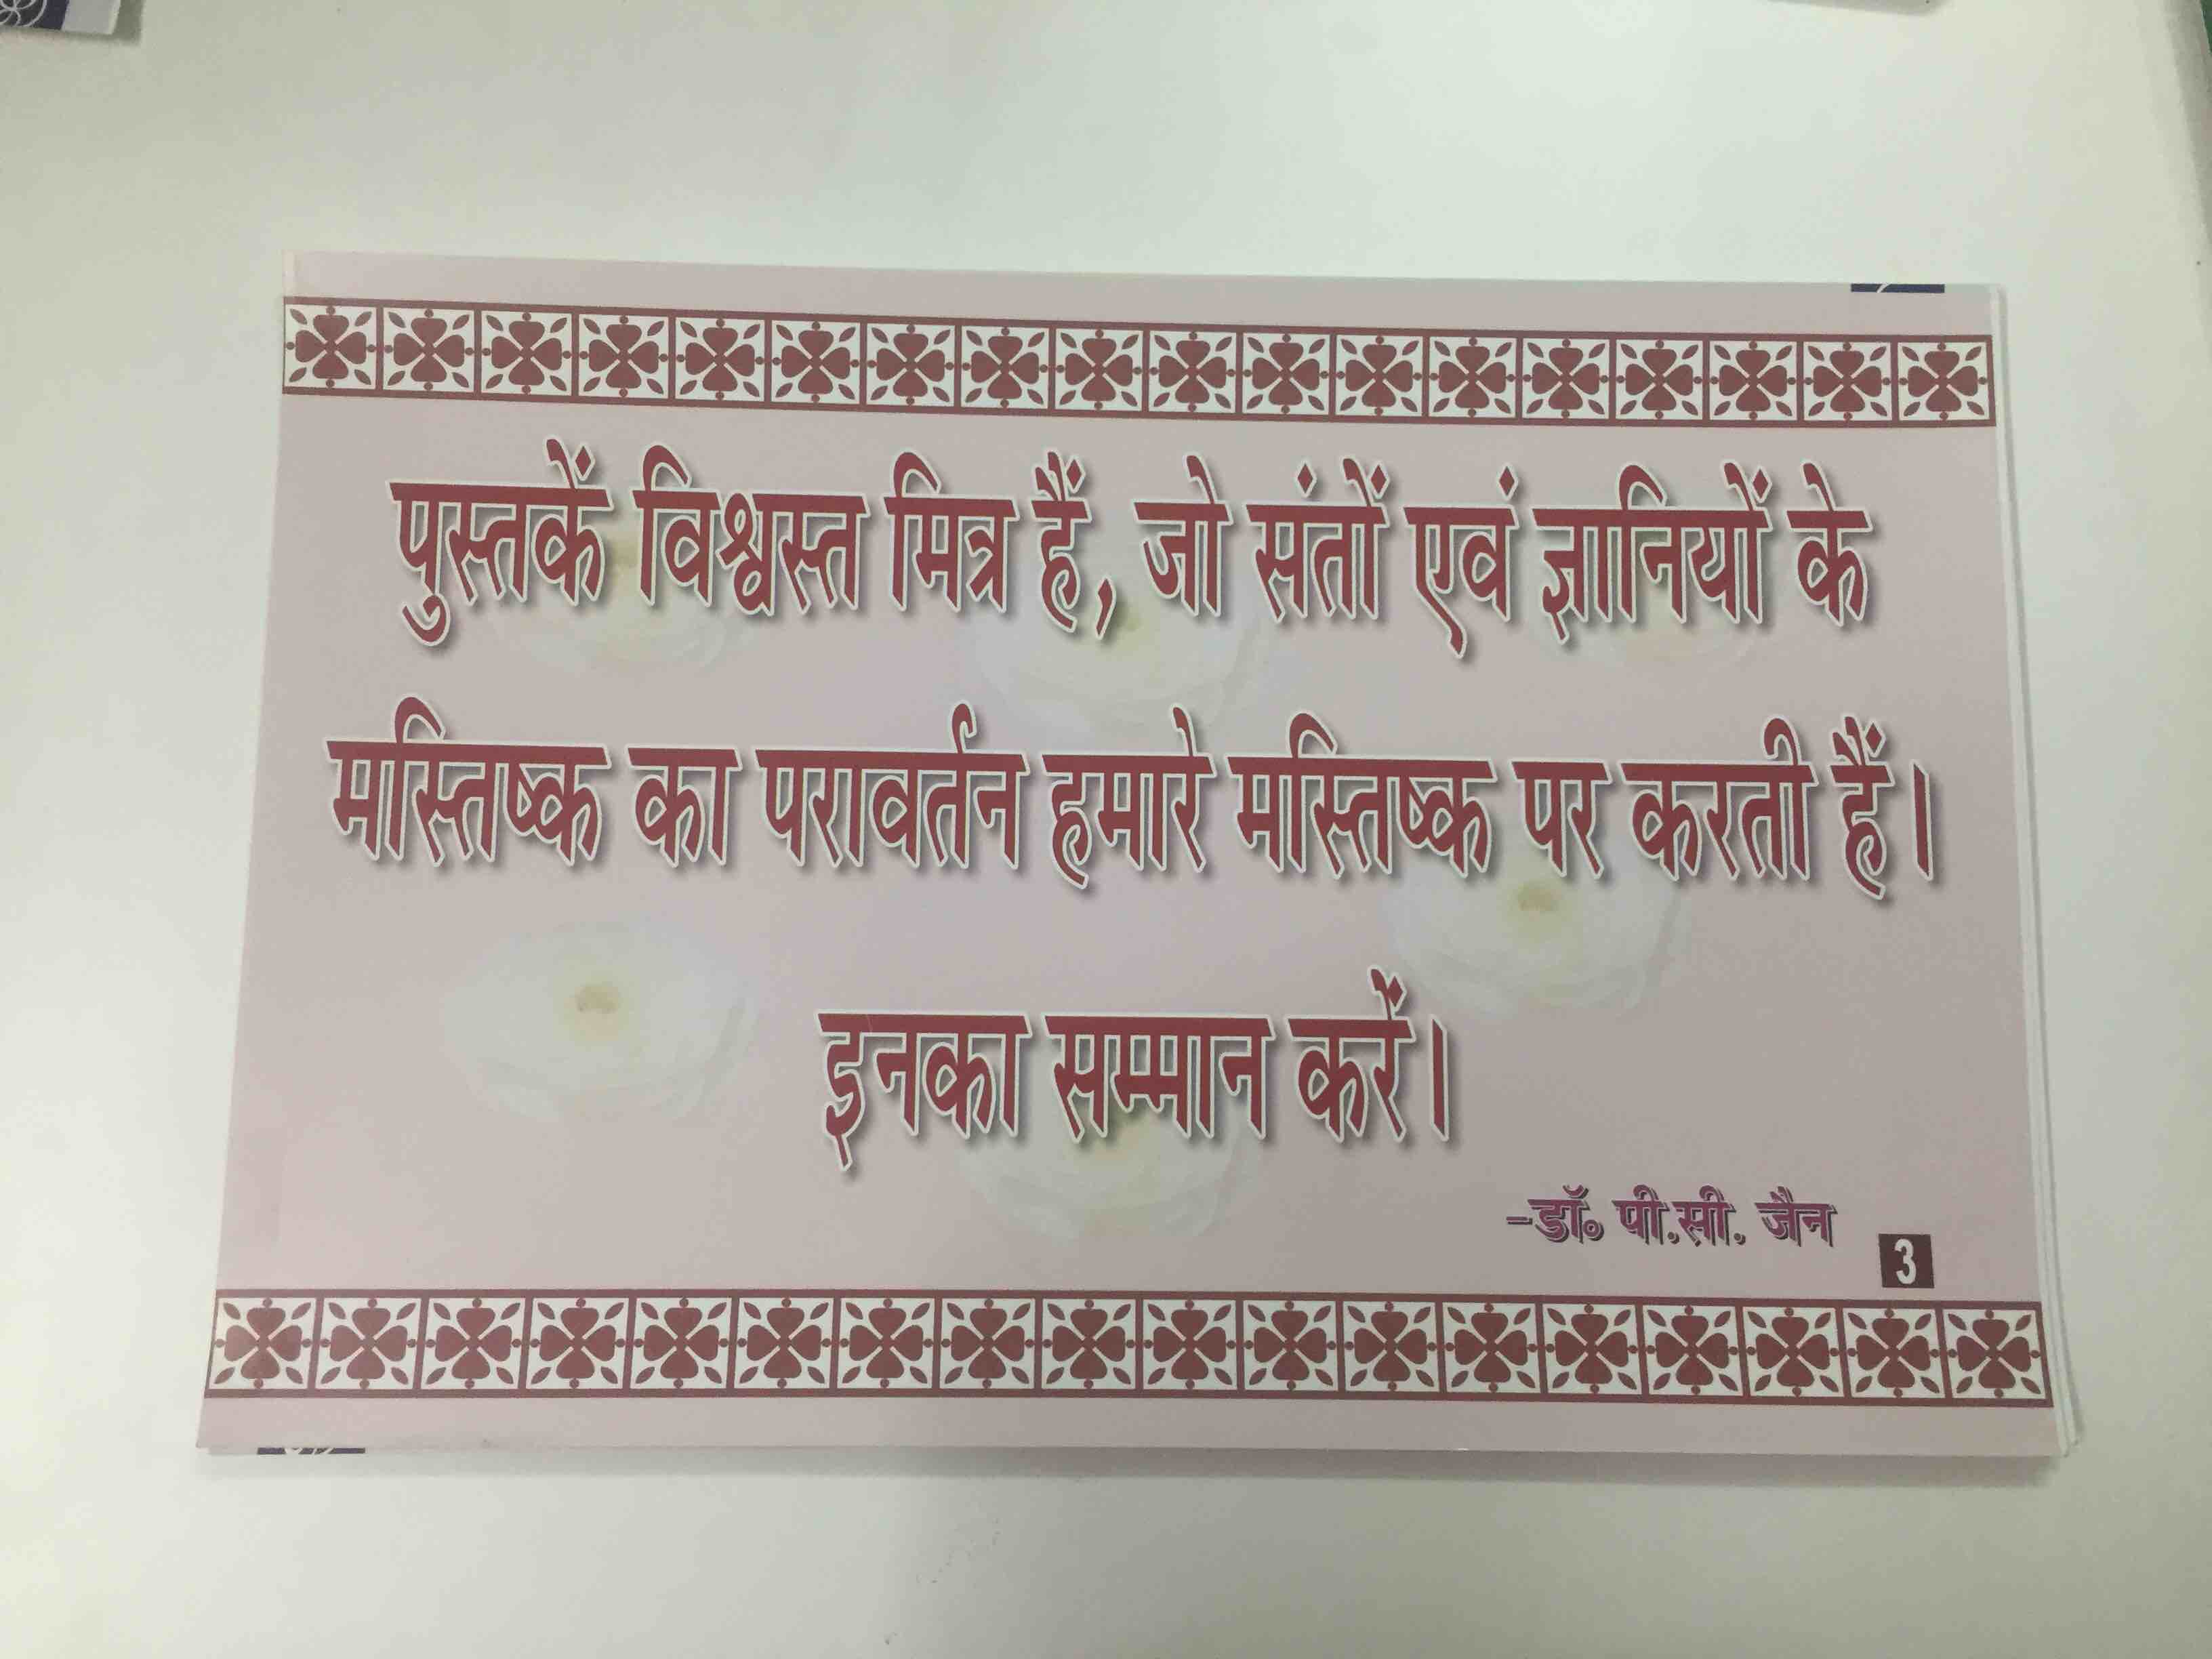 पुस्तकें विश्वस्त मित्र हैं, जो संतों एवं ज्ञानियों के
मस्तिष्क का परावर्तन हमारे मस्तिष्क पर करती हैं।
इनका सम्मान करें।
-डॉ॰ पी.सी. जैन
3